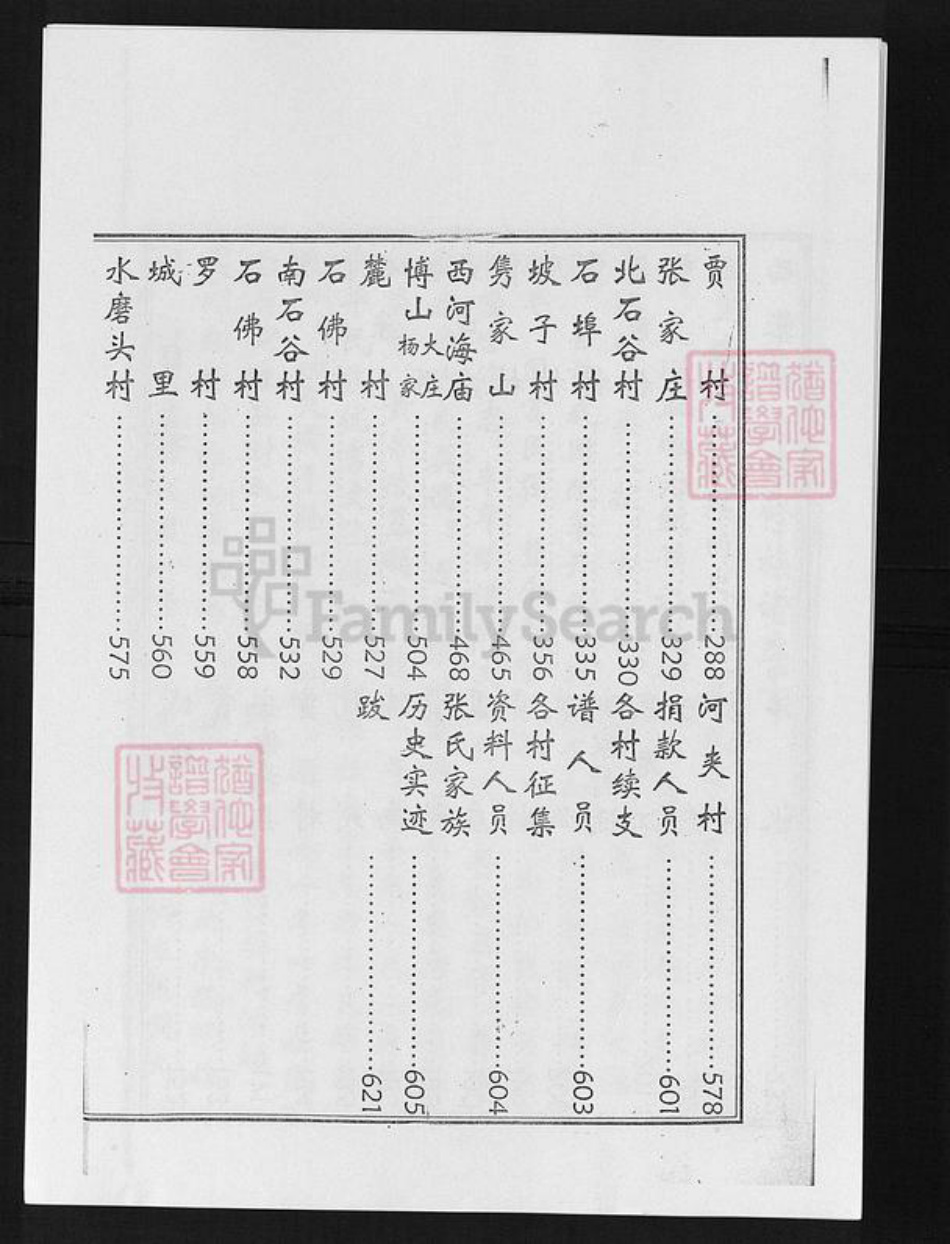 贾村……288
张家庄……329
北石谷村……330
石埠村……335
坡子村……356
隽家山……465
西河海庙……468
博山大庄杨家……504
麓村……527
石佛村……529
南石谷村……532
石佛村……558
罗村……559
城里……560
水磨头村……575
河夹村……578
捐款人员……601
各村续支
谱人员……603
各村征集
资料人员……604
张氏家族
历史实迹……605
跋……621
FamilySearch